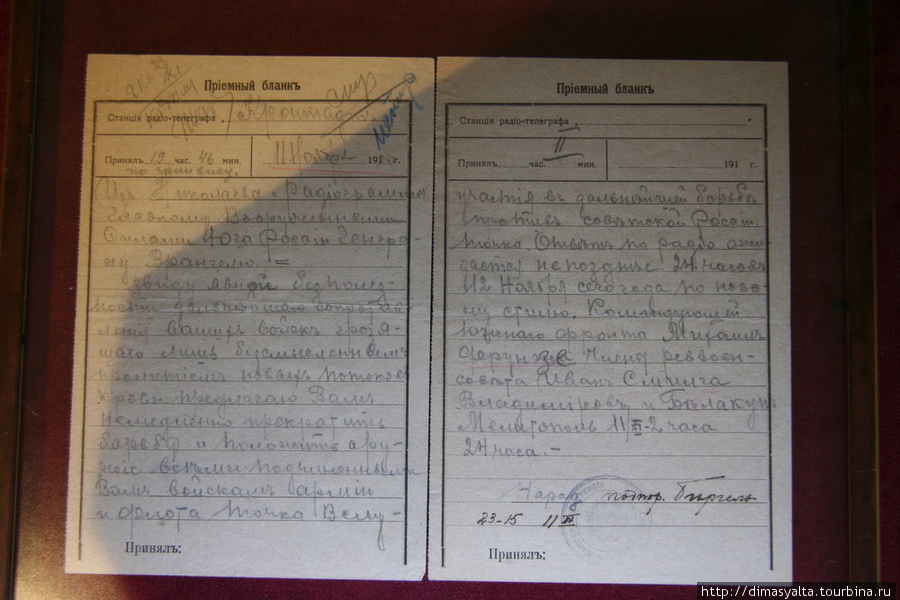 Пріемный бланкъ
Станція радіо-телеграфа
Принялъ 19 час. 46 мин. 11 Ноября 191 г.
Изъ Николаева = Радіограмма
Главному Вооруженными
Силами Юга Росаіи Генера-
лу Врангелю. =
Ввиду явной безполез-
ности дальнѣйшаго сопротив
ленія вашихъ войскъ грозя-
щаго лишь безсмысленнымъ
пролитіемъ новыхъ потоковъ
крови предлагаю Вамъ
немедленно прекратить
борьбу и положить ору-
жіе всѣми подчиненными
Вамъ войскамъ арміи
и флота точка Вслу-
Принялъ:
Пріемный бланкъ
Станція радіо-телеграфа
II
Принялъ час. мин. 191 г.
участія въ дальнѣйшей борьбѣ
противъ совѣтской Росаіи
точка. Отвѣтъ по радіо ожи-
дается не позднѣе 24 часовъ
12 Ноября сего года по ново-
му стилю. Командующій
Южнаго фронта Михаилъ
Фрунзе Члены реввоен-
совѣта Иванъ Смилга
Владиміровъ и Бѣлакунъ
Мелитополь 11/XI-2 часа
24 часа. -
23-15 11 XI
Принялъ:
http://dimasyalta.tourbina.ru